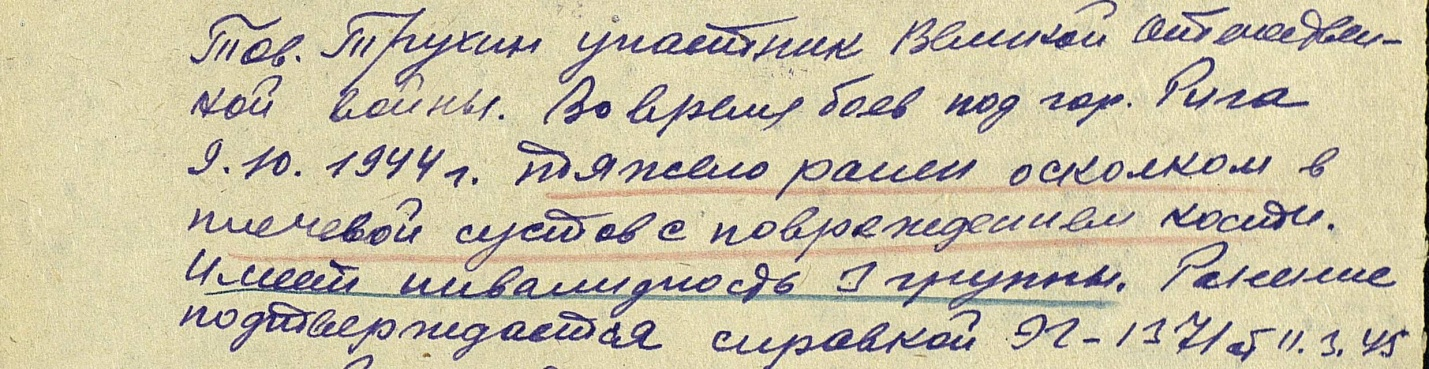 Тов. Трухин участник Великой Отечествен-
ной войны. Во время боев под гор. Рига
9.10.1944 г. тяжело ранен осколком в
плечевой сустав с повреждением кости.
Имеет инвалидность 3 группы. Ранение
подтверждается справкой ЭГ-1371 от 11.3.45